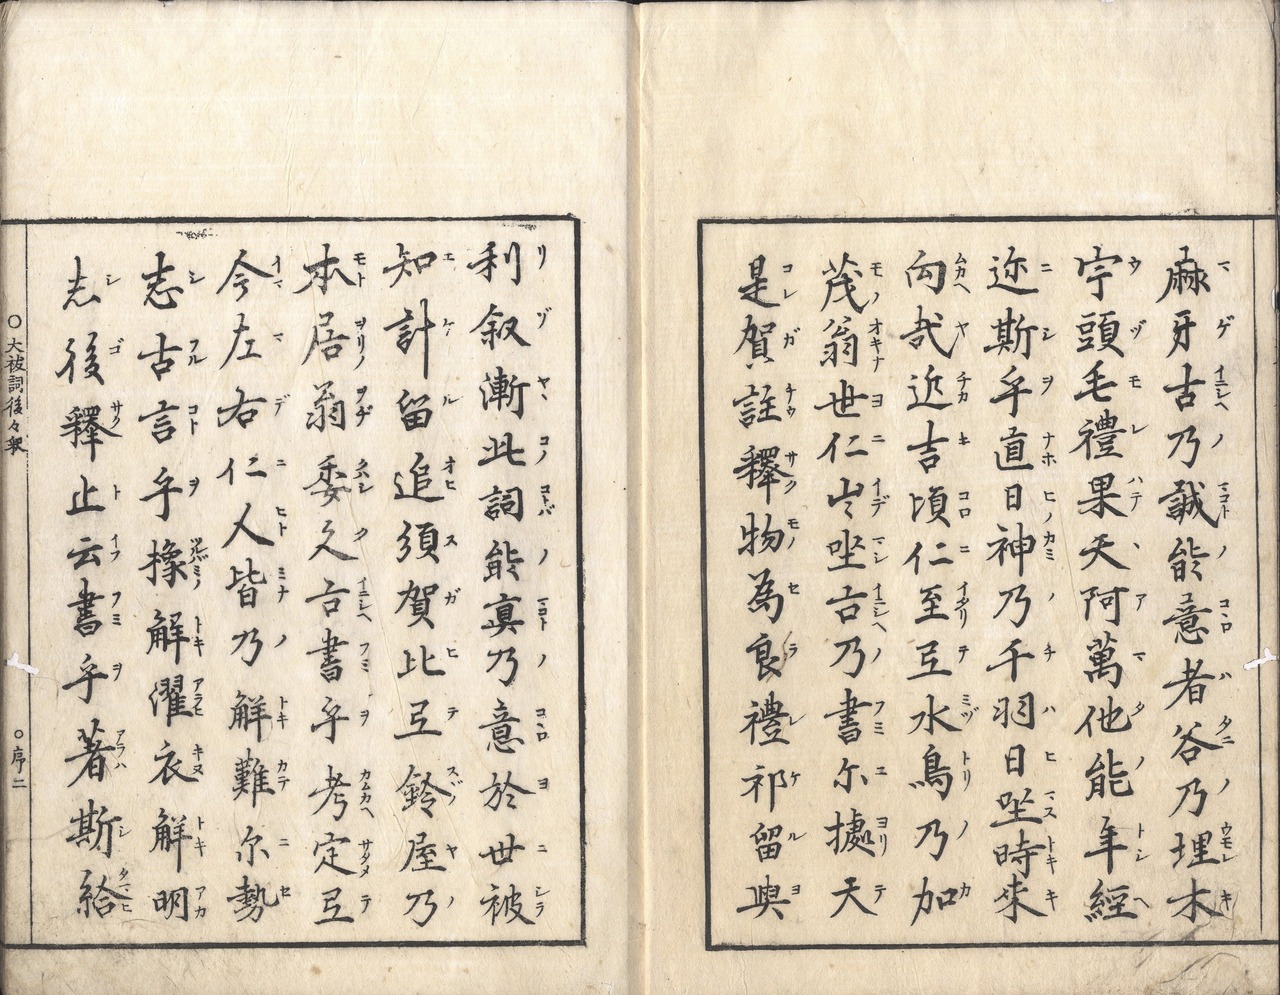 麻牙古乃誠能意者谷乃埋木
宇頭毛禮果天阿萬他能年經
迩斯乎直日神乃千羽日坐時来
向哉近吉頃仁至弖水鳥乃加
茂翁世仁出坐古乃書尓據天
是賀註釋物為良禮祁留與
利叙漸此詞能真乃意於世被
知計留追須賀比弖鈴屋乃
本居翁委久古書乎考定弖
今左右仁人皆乃解難尓勢
志古言乎橡解濯衣解明
志後釋止云書乎著斯給
〇大祓詞後々釈
〇序二